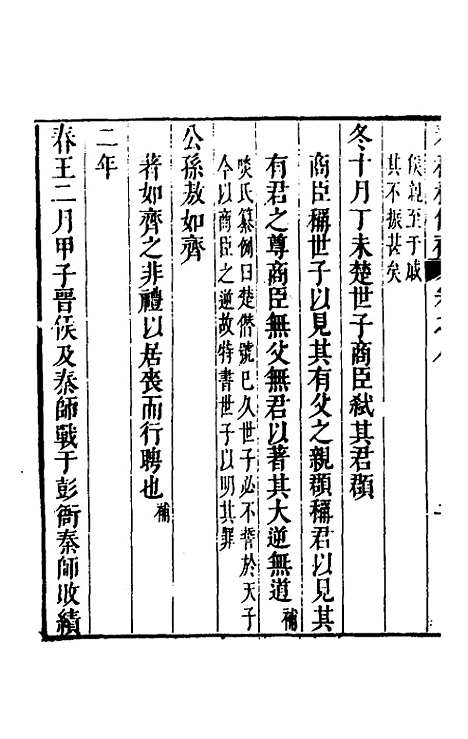 侯親至于戚
其不振甚矣
冬十月丁未楚世子商臣弑其君頵
商臣稱世子以見其有父之親頵稱君以見其
有君之尊商臣無父無君以著其大逆無道補
啖氏纂例曰楚僭號已久世子必不誓於天子
今以商臣之逆故特書世子以明其罪
公孫敖如齊
著如齊之非禮以居喪而行聘也補
二年
春王二月甲子晉侯及秦師戰于彭衙秦師敗績